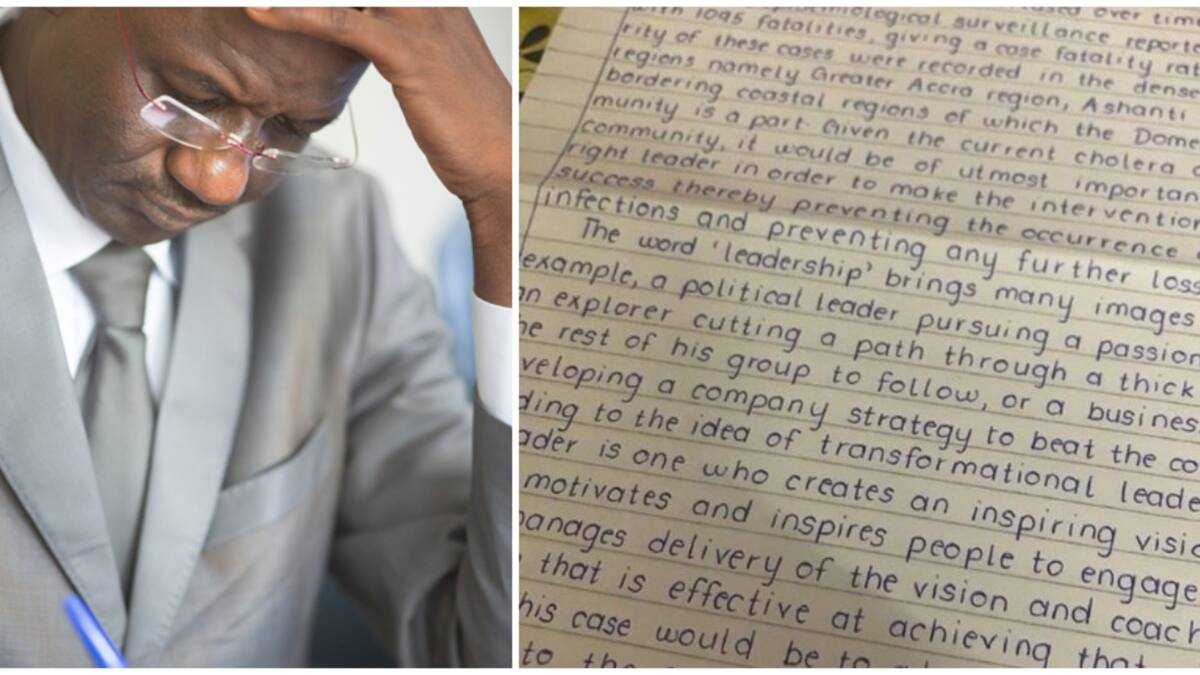 over time
with 1095 fatalities, giving a case fatality rat
rity of these cases were recorded in the dense
regions namely Greater Accra region, Ashanti
bordering coastal regions of which the Dome
munity is a part. Given the current cholera
community, it would be of utmost importan
right leader in order to make the intervention
success thereby preventing the occurrence
infections and preventing any further loss
The word 'leadership' brings many images
example, a political leader pursuing a passion
an explorer cutting a path through a thick
he rest of his group to follow, or a business
veloping a company strategy to beat the co
ding to the idea of transformational leade
ader is one who creates an inspiring visio
motivates and inspires people to engage
anages delivery of the vision and coach
that is effective at achieving that
his case would be to
to the